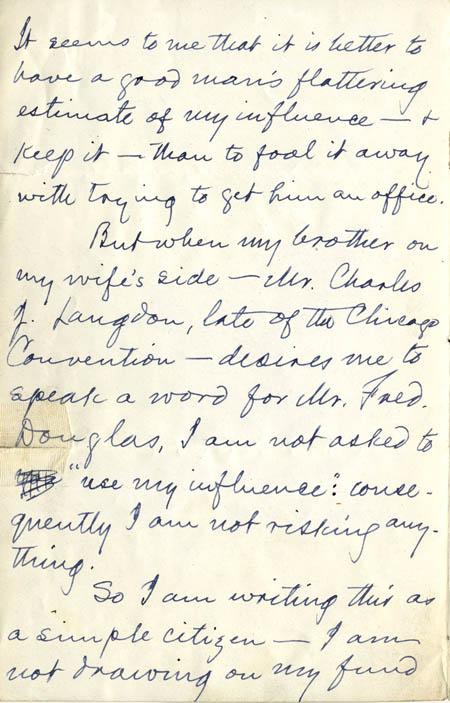 It seems to me that it is better to
have a good man's flattering
estimate of my influence — &
keep it — than to fool it away
with trying to get him an office.
But when my brother on
my wife's side — Mr. Charles
J. Langdon, late of the Chicago
Convention — desires me to
speak a word for Mr. Fred.
Douglas, I am not asked to
"use my influence": conse-
quently I am not risking any-
thing.
So I am writing this as
a simple citizen — I am
not drawing on my fund